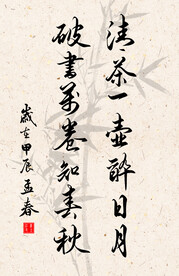 清茶一壶醉日月
破书万卷知春秋
岁在甲辰孟春